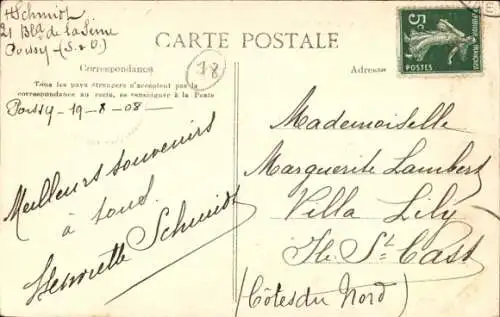 HSchmidt
21 Bld de la Seine
Poissy (S & O)
CARTE POSTALE
Correspondance
Tous les pays étrangers n'acceptent pas la
correspondance au recto, se renseigner à la Poste
18
Adresse
5c
POSTES
Poissy - 19 - 8 - 08 -
Meilleurs souvenirs
à tous.
Henriette Schmidt
Mademoiselle
Marguerite Lambert
Villa Lily
St Cast
(Côtes du Nord)